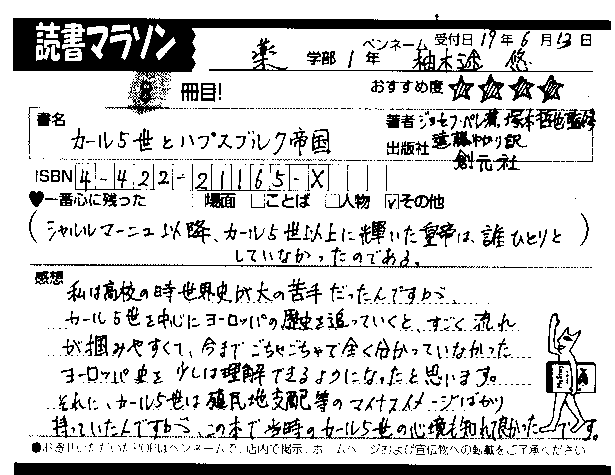 読書マラソン
ペンネーム 受付日 19年 6月 13日
薬 学部 1年 柚木 悠
8 冊目! おすすめ度 ☆☆☆☆
書名 カール5世とハプスブルク帝国
著者 ジョセフ・ペレ著, 塚本哲也監修
遠藤ゆかり訳
出版社 創元社
ISBN 4-422-21165-X
♥一番心に残った □場面 □ことば □人物 ☑その他
(シャルルマーニュ以降、カール5世以上に輝いた皇帝は、誰ひとりと
していなかったのである。)
感想
私は高校の時世界史が大の苦手だったんですが、
カール5世を中心にヨーロッパの歴史を追っていくと、すごく流れ
が掴みやすくて、今までごちゃごちゃで全く分かっていなかった
ヨーロッパ史を少しは理解できるようになったと思います。
それに、カール5世は植民地支配等のマイナスイメージばかり
持っていたんですが、この本で当時のカール5世の心境も知れて良かったです。
●お寄せいただいたPOPはペンネームで、店内で掲示、ホームページおよび宣伝物への転載をご了承ください